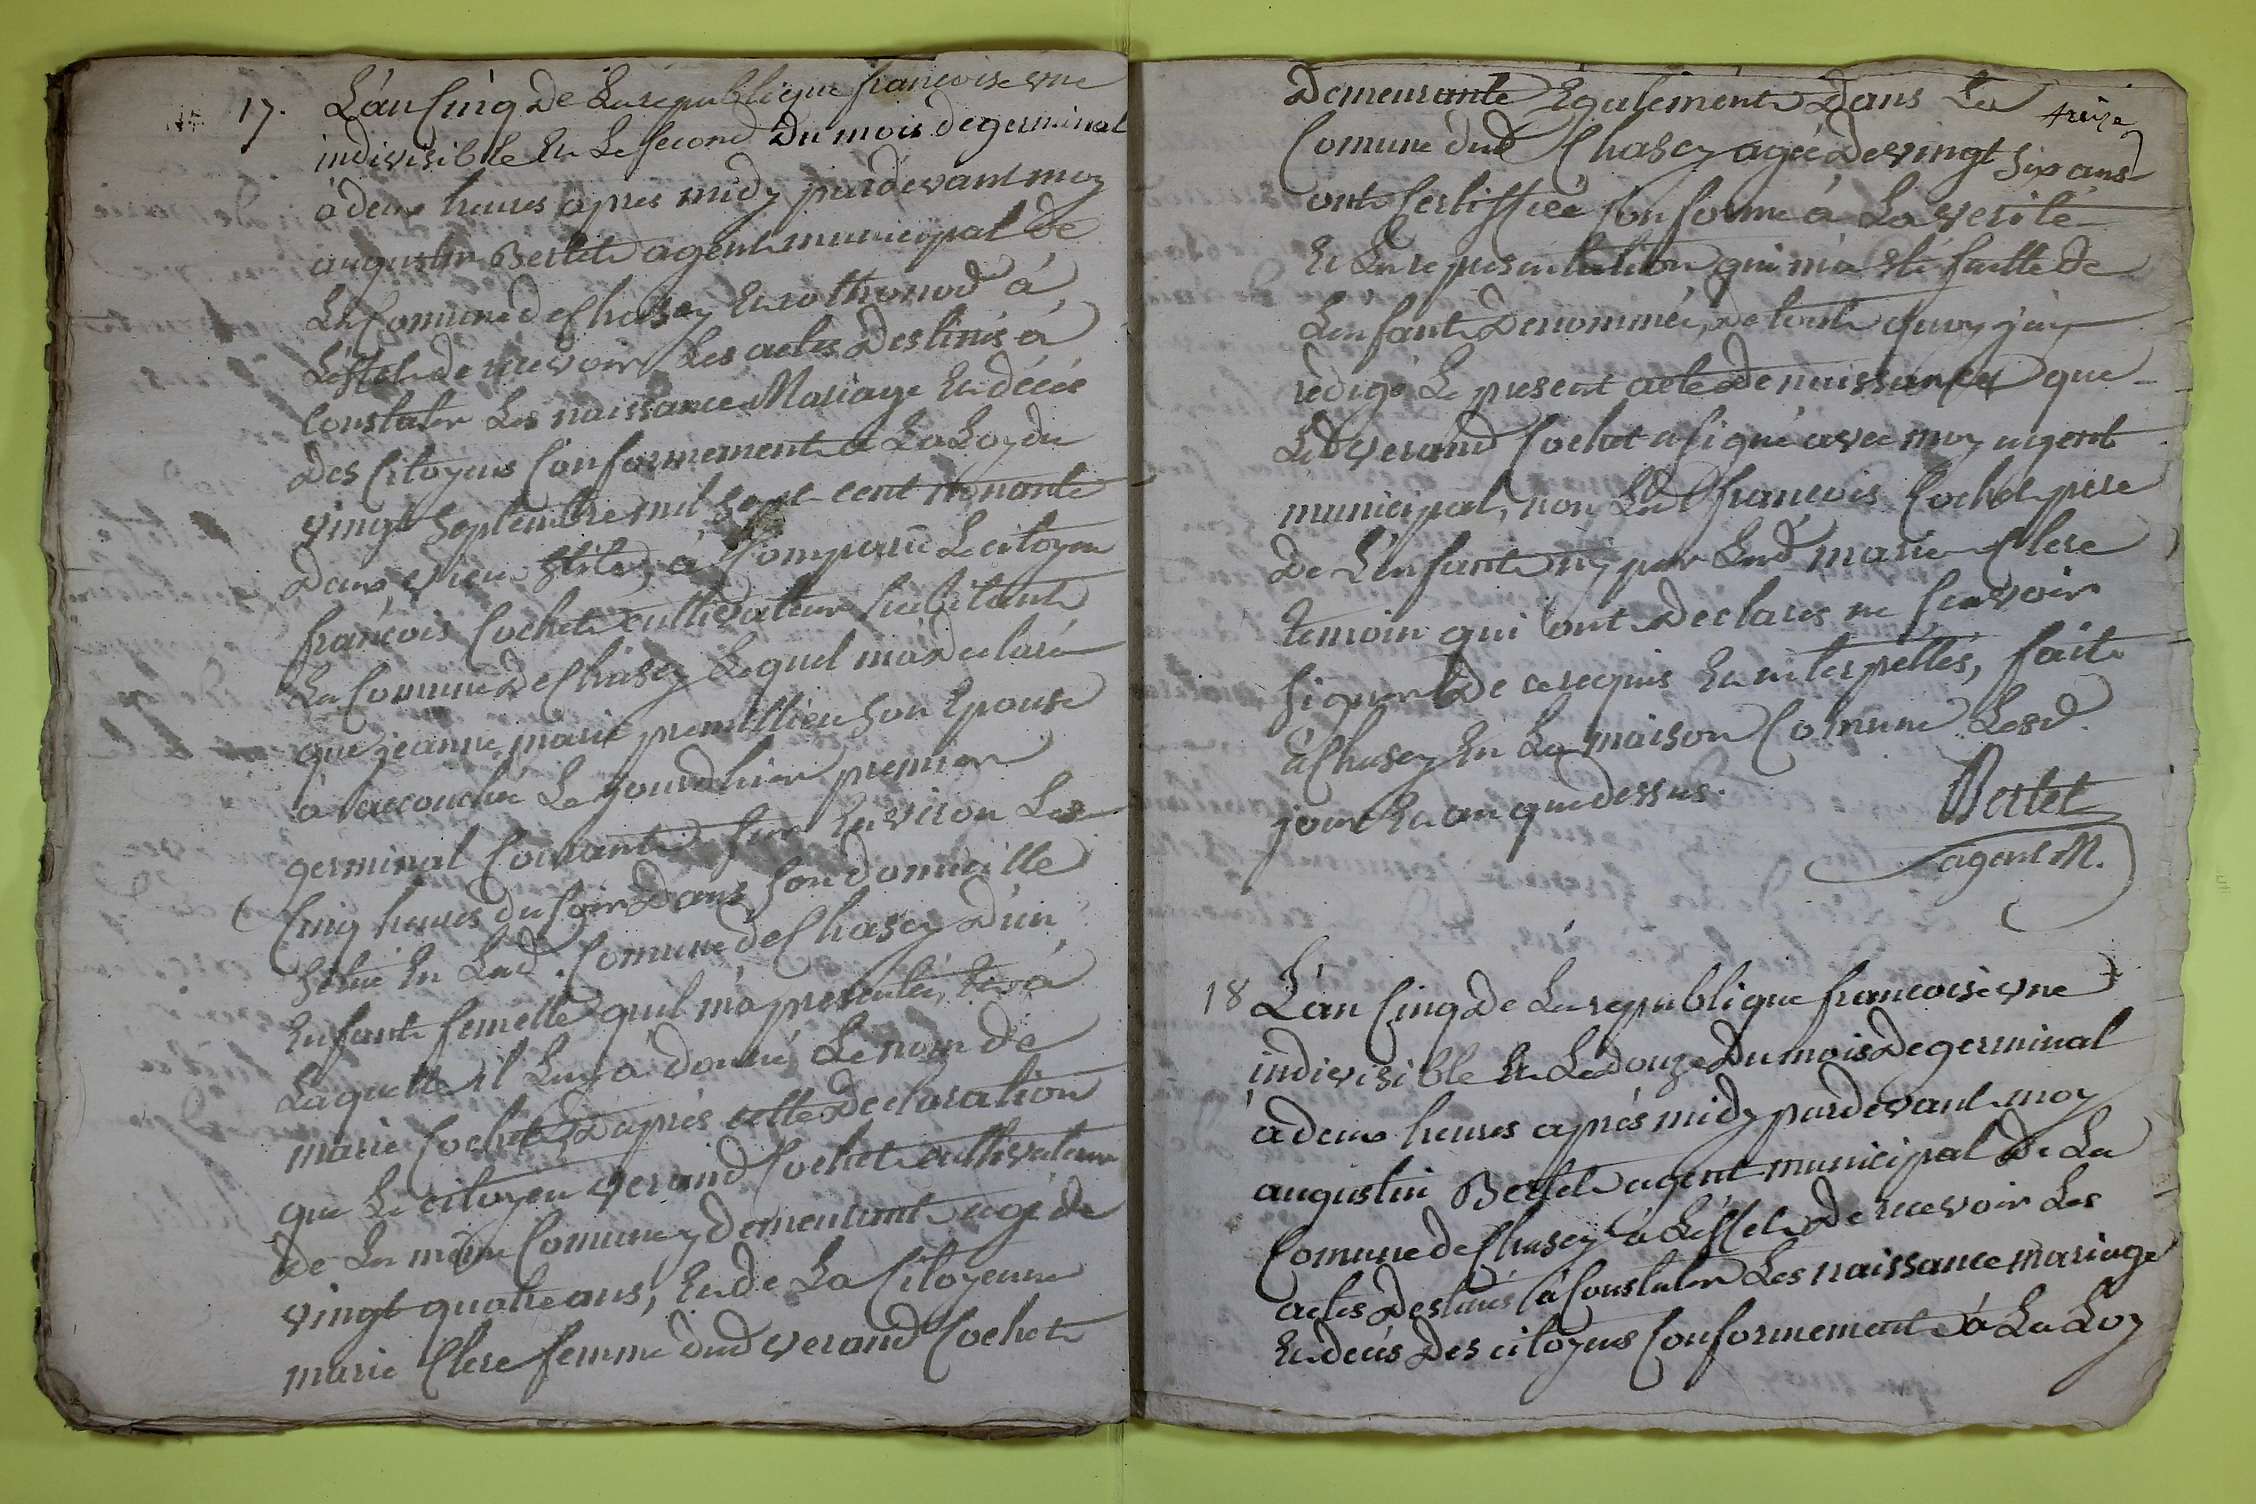 17. L'an Cinq de La republique françoise vne
indivisible Et Le second Du mois de germinal
à deux heures apres midy pardevant moy
augustin Bertet agent municipal de
La Comune de Chasey Et rothonod à
L'effet de recevoir Les actes Destinés à
Constater Les naissance Mariage Et décés
des Citoyens Conformement a La Loy du
vingt Septembre mil sept cent nonante
Deux vieu stile, à Comparû Le citoyen
françois Cochet cultivateur habitant
La Comune de Chasey Lequel m'a declaré
que jeanne marie premillieu son Epouse
à accouchée Le jourdhier premier
germinal Courant sur Environ Les
Cinq heures du soir Dans son domicille
situé En Lad. Comune de Chasey D'un
Enfant femelle quil m'a presentée, Et à
Laquelle il Luy à donné Le nom de
marie Cochet, D'aprés cette Declaration
que Le citoyen verand Cochet cultivateur
de La même Comune y demeurant agé de
vingt quatre ans, Et de La Citoyenne
marie Clere femme dud verand Cochet
Demeurante Egalement Dans La
treize
Comune dud Chasey agée De vingt six ans
ont Certiffiée Conforme à La verité
Et La representation qui m'a eté faitte de
L'enfant Denommée, de tout quoy j'ay
redigé Le present acte De naissance que
Led verand Cochet a signé avec moy agent
municipal, non Led françois Cochet pere
de L'enfant ny par Lad marie Clere
temoin qui ont Declarés ne scavoir
signer De ce requis Et interpellés, fait
à Chasey En La maison Comune Lesd.
jour Et an que dessus.
Bertet
agent M.
18 L'an Cinq de La republique francoise vne
indivisible Et Le douze Du mois De germinal
à deux heures aprés midy pardevant moy
augustin Bertet agent municipal De La
Comune de Chasey à L'effet De recevoir Les
actes Destinés à Constater Les naissance mariage
Et decés Des citoyens Conformement à La Loy